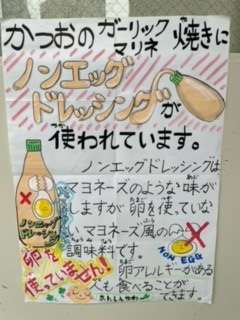 かつおの ガーリックマリネ 焼きに
ノンエッグ
ドレッシングが
使われています。
ノンエッグドレッシングは
マヨネーズのような味が
しますが 卵を使っていな
いマヨネーズ風の
調味料です。
卵アレルギーがある
人も食べることが
できます。
ノンエッグ
ドレッシング
NON EGG
卵を
使っていません!